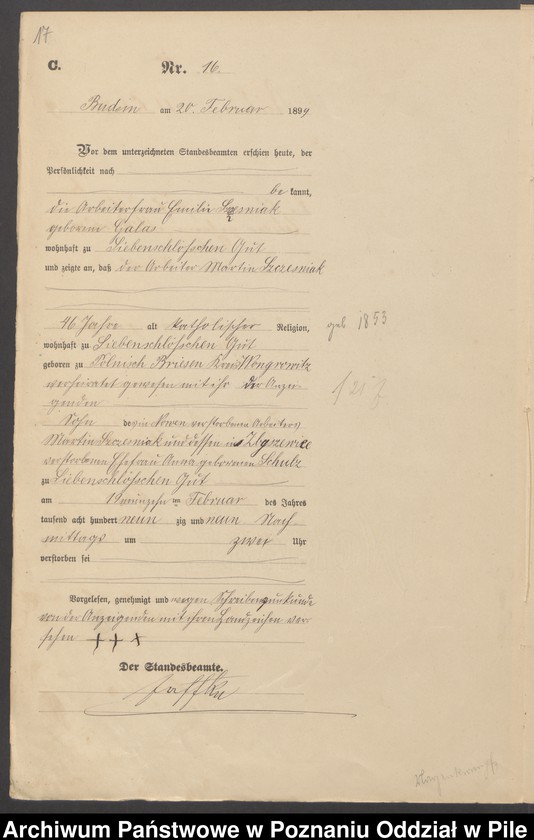 17
C.
Nr. 16.
Budsin am 20. Februar 1899
Vor dem unterzeichneten Standesbeamten erschien heute, der
Persönlichkeit nach
be kannt,
die Arbeiterfrau Emilie Szesniak
geborene Galas
wohnhaft zu Liebenschlößchen Gut
und zeigte an, daß der Arbeiter Martin Szczesniak
46 Jahre alt katholischer Religion,
wohnhaft zu Liebenschlößchen Gut
geboren zu Polnisch Briesen Kreis Wongrowitz
verheiratet gewesen mit ihr der Anzei-
genden
Sohn des in Nowen verstorbenen Arbeiters
Martin Szczesniak und dessen in
verstorbene Ehefrau Anna geborenen Schulz
zu Liebenschlößchen Gut
am 19 neunzehn ten Februar des Jahres
tausend acht hundert neun zig und neun Nach
mittags um zwei Uhr
verstorben sei
Vorgelesen, genehmigt und wegen Schreibensunkunde
von der Anzeigenden mit ihren Handzeichen ver
sehen + + +
Der Standesbeamte.
Jaffke
geb 1853
Archiwum Państwowe w Poznaniu Oddział w Pile